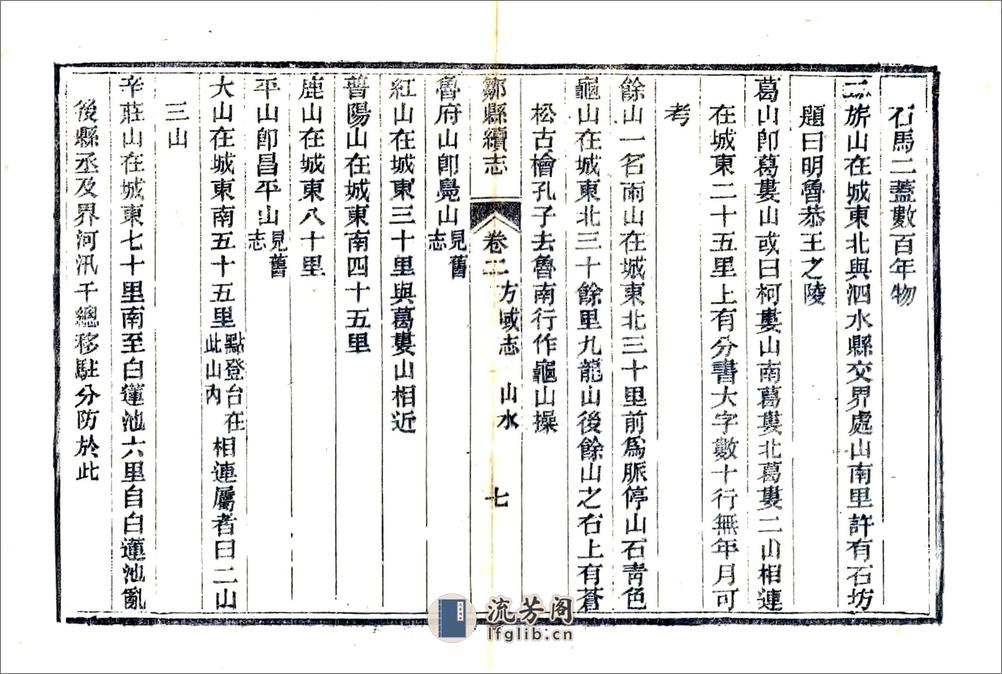 石馬二蓋數百年物
二旂山在城東北與泗水縣交界處山南里許有石坊
題曰明魯恭王之陵
葛山卽葛婁山或曰柯婁山南葛婁北葛婁二山相連
在城東二十五里上有分書大字數十行無年月可
考
餘山一名兩山在城東北三十里前爲脈停山石靑色
龜山在城東北三十餘里九龍山後餘山之右上有蒼
松古檜孔子去魯南行作龜山操
鄒縣續志 卷二 方域志 山水 七
魯府山卽鳧山見舊志
紅山在城東三十里與葛婁山相近
普陽山在城東南四十五里
鹿山在城東八十里
平山卽昌平山見舊志
大山在城東南五十五里點登台在此山內相連屬者曰二山
三山
辛莊山在城東七十里南至白蓮池六里自白蓮池亂
後縣丞及界河汛千總移駐分防於此
流芳阁
lfglib.cn